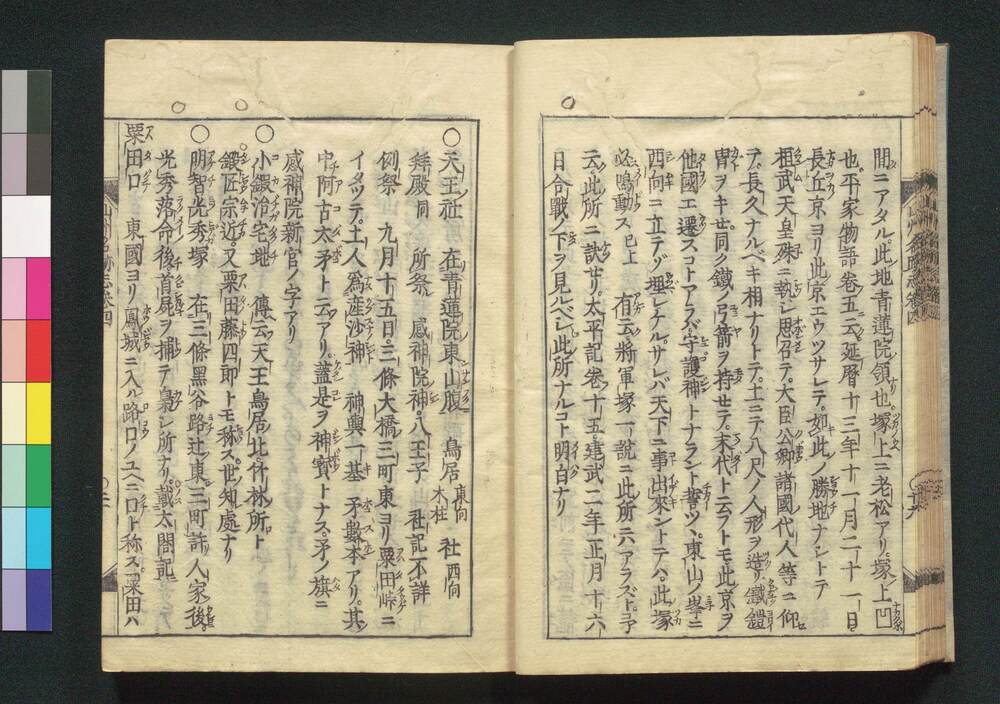 間ニアタル此地青蓮院領也塚上ニ老松アリ塚上凹
也平家物語卷五云延暦十三年十一月二十一日
長丘京ヨリ此京エウツサレテ如此ノ勝地ナシトテ
祖武天皇殊ニ執シ思召テ大臣公卿諸國代人等ニ仰
テ長久ナルベキ相ナリトテ土ニテ八尺ノ人形ヲ造リ鐵鎧
冑ヲキセ同ク鐵ノ弓箭ヲ持セテ末代ト云フトモ此京ヲ
他國エ遷スコトアラバ守護神トナラント誓ツヽ東山ノ峯ニ
西向ニ立テゾ埋レケルサレバ天下ニ事出來ントテハ此塚
必鳴動ス已上 有云將軍塚一說ニ此所ニ六アラズト予
云此所ニ訣セリ太平記卷十五建武二年正月十六
日合戰ノ下ヲ見ルベシ此所ナルコト明白ナリ
○天王社 在青蓮院東山腹 鳥居東向木柱 社西向
拜殿同 所祭 感神院神八王子 社記不詳
例祭 九月十五日三條大橋三町東ヨリ粟田峠ニ
イタツテ土人爲産沙神 神輿一基 矛數本アリ其
中阿古太矛ト云アリ蓋是ヲ神寶トナス矛ノ旗ニ
感神院新宮ノ字アリ
○小鍛冶宅地 傳云天王鳥居北竹林所ト
鍛匠宗近又粟田藤四郎トモ称ス世知處ナリ
○明智光秀塚 在三條黑谷路辻東三町許人家後
光秀落命後首屍ヲ捕テ梟シ所ナリ載太閤記
粟田口 東國ヨリ鳳城ニ入ル路口ノユヱニ口ト称ス粟田ハ